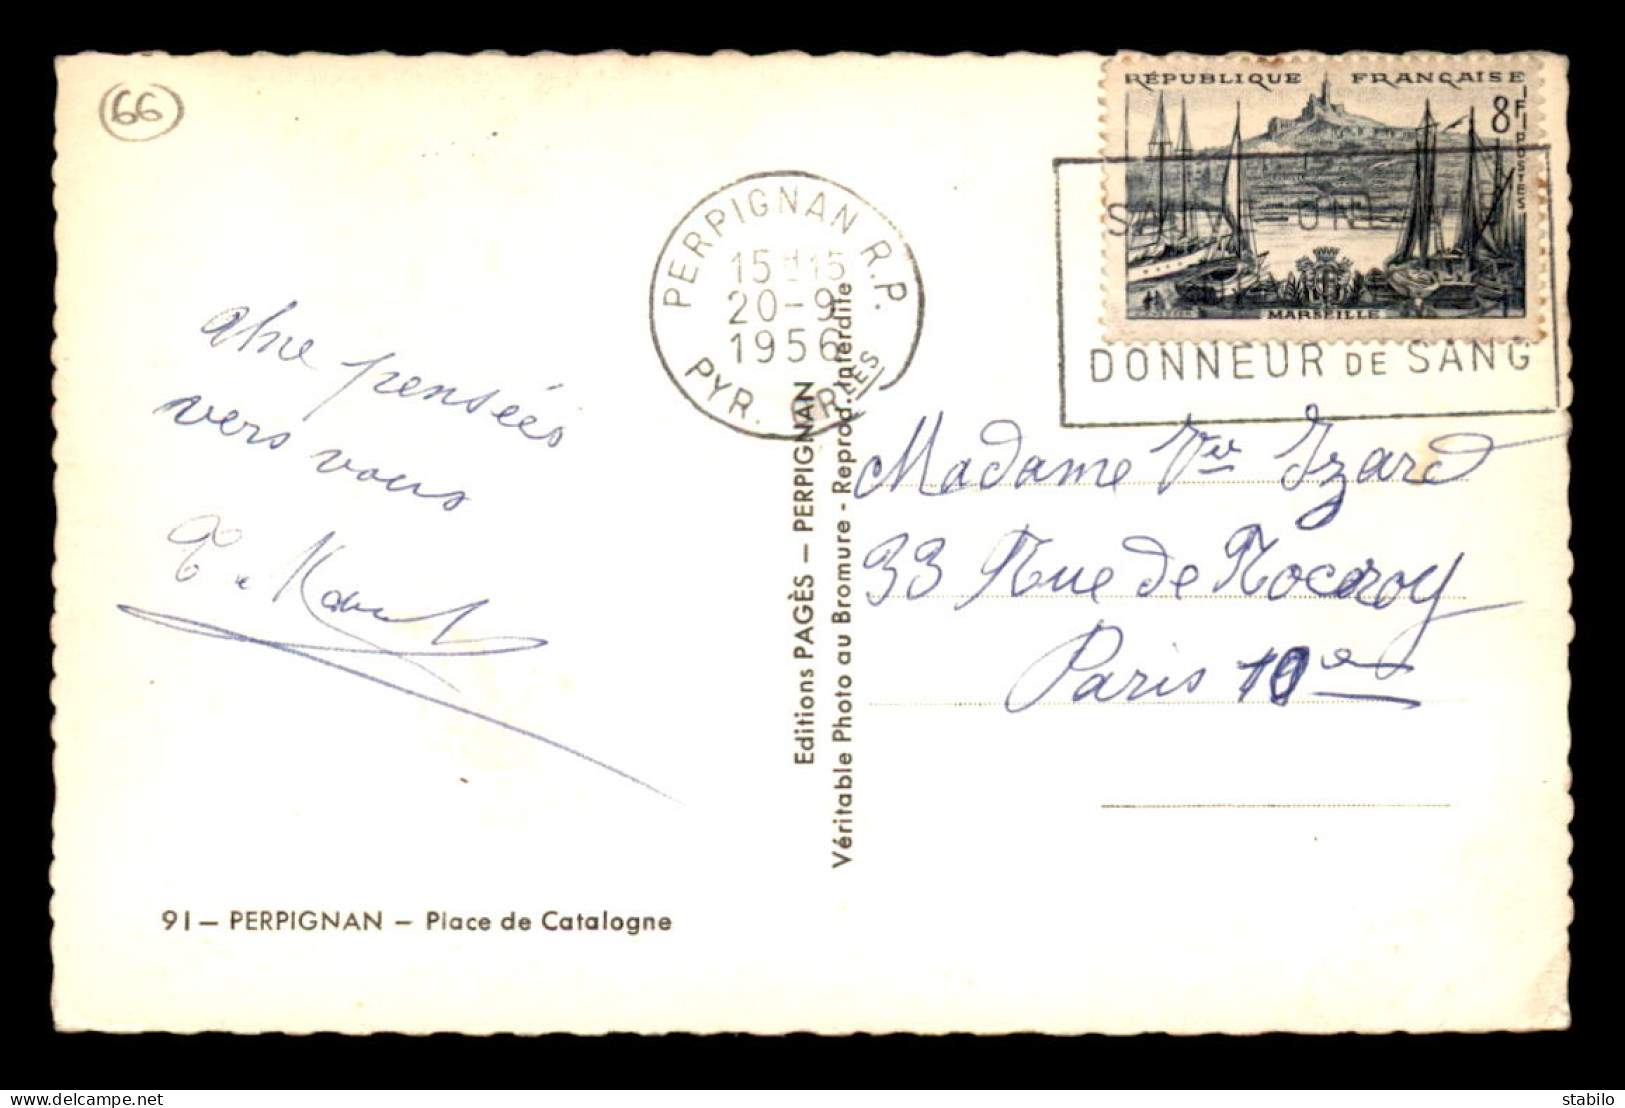 66
RÉPUBLIQUE FRANÇAISE
8F
POSTES
MARSEILLE
PERPIGNAN R.P.
15H15
20-9
1956
PYR. ORLES
DONNEUR DE SANG
pensées
vers vous
Madame Vve Izard
33 Rue de Rocroy
Paris 10e
Editions PAGÈS — PERPIGNAN
Véritable Photo au Bromure - Reprod. Interdite
91 — PERPIGNAN — Place de Catalogne
delcampe.net
stabilo